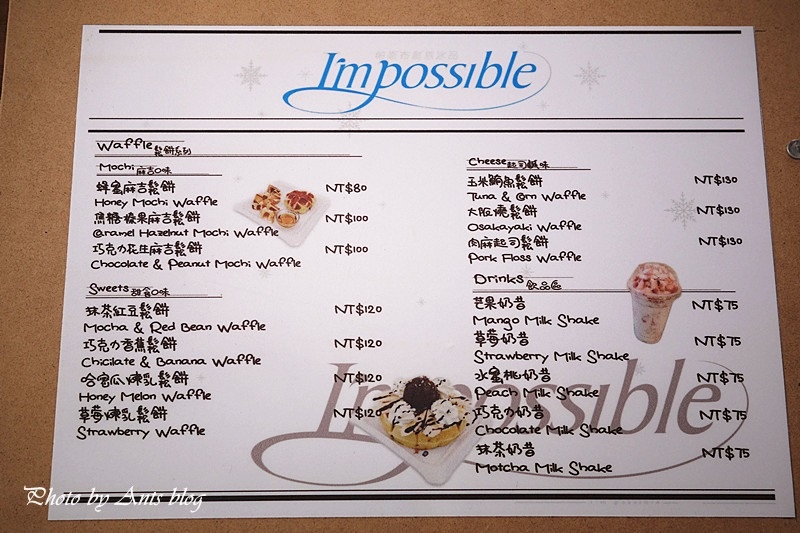 I'mpossible
Waffle鬆餅系列
Mochi麻吉口味
蜂蜜麻吉鬆餅 NT$80
Honey Mochi Waffle
焦糖榛果麻吉鬆餅 NT$100
Caramel Hazelnut Mochi Waffle
巧克力花生麻吉鬆餅 NT$100
Chocolate & Peanut Mochi Waffle
Sweets甜食口味
抹茶紅豆鬆餅 NT$120
Mocha & Red Bean Waffle
巧克力香蕉鬆餅 NT$120
Chicilate & Banana Waffle
哈密瓜煉乳鬆餅 NT$120
Honey Melon Waffle
草莓煉乳鬆餅 NT$120
Strawberry Waffle
Cheese起司鹹味
玉米鮪魚鬆餅 NT$130
Tuna & Corn Waffle
大阪燒鬆餅 NT$130
Osakayaki Waffle
肉麻起司鬆餅 NT$130
Pork Floss Waffle
Drinks飲品區
芒果奶昔 NT$75
Mango Milk Shake
草莓奶昔 NT$75
Strawberry Milk Shake
水蜜桃奶昔 NT$75
Peach Milk Shake
巧克力奶昔 NT$75
Chocolate Milk Shake
抹茶奶昔 NT$75
Motcha Milk Shake
I'mpossible
Photo by Ants blog